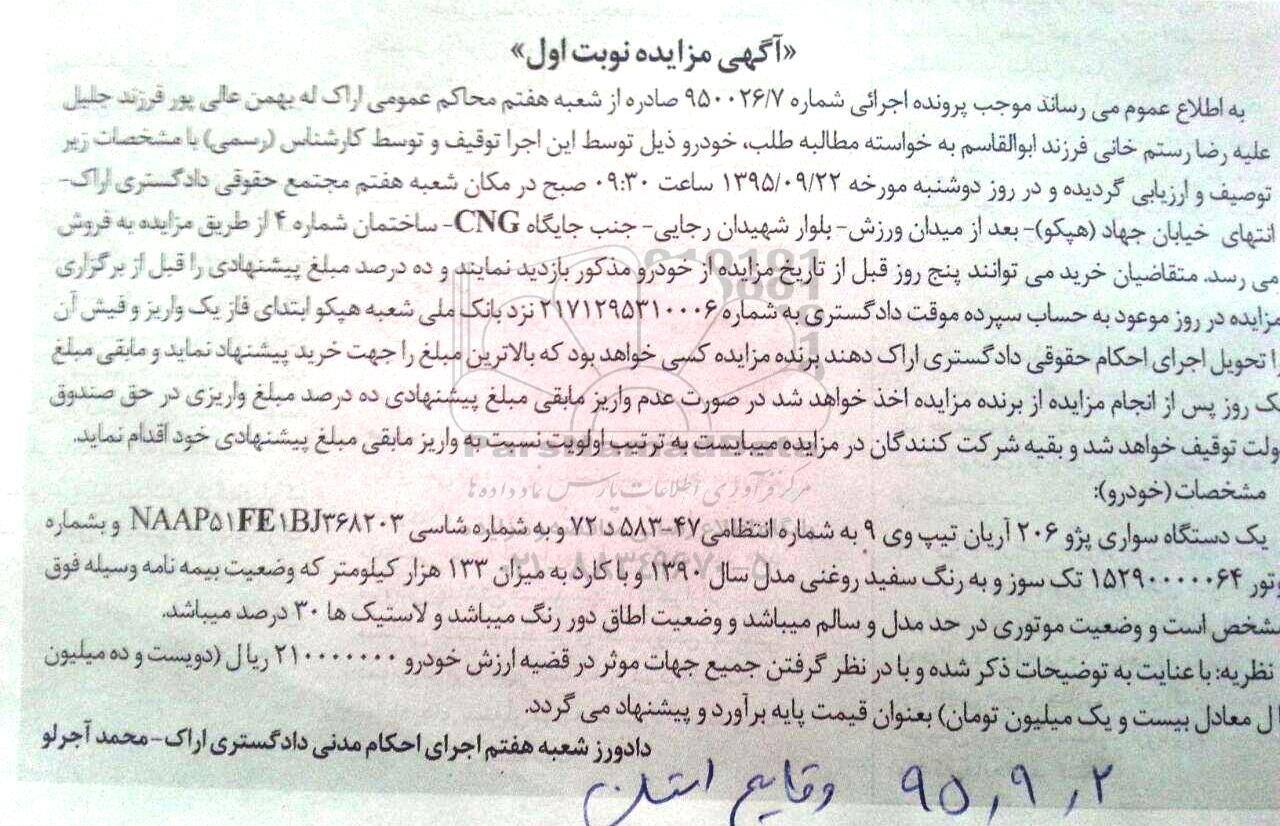 «آگهی مزایده نوبت اول»
به اطلاع عموم می رساند موجب پرونده اجرائی شماره ۹۵۰۰۲۶/۷ صادره از شعبه هفتم محاکم عمومی اراک له بهمن عالی پور فرزند جلیل
علیه رضا رستم خانی فرزند ابوالقاسم به خواسته مطالبه طلب، خودرو ذیل توسط این اجرا توقیف و توسط کارشناس (رسمی) با مشخصات زیر
توصیف و ارزیابی گردیده و در روز دوشنبه مورخه ۱۳۹۵/۰۹/۲۲ ساعت ۰۹:۳۰ صبح در مکان شعبه هفتم مجتمع حقوقی دادگستری اراک-
انتهای خیابان جهاد (هپکو)- بعد از میدان ورزش- بلوار شهیدان رجایی- جنب جایگاه CNG- ساختمان شماره ۴ از طریق مزایده به فروش
می رسد. متقاضیان خرید می توانند پنج روز قبل از تاریخ مزایده از خودرو مذکور بازدید نمایند و ده درصد مبلغ پیشنهادی را قبل از برگزاری
مزایده در روز موعود به حساب سپرده موقت دادگستری به شماره ۲۱۷۱۲۹۵۳۱۰۰۰۶ نزد بانک ملی شعبه هپکو ابتدای فاز یک واریز و فیش آن
را تحویل اجرای احکام حقوقی دادگستری اراک دهند برنده مزایده کسی خواهد بود که بالاترین مبلغ را جهت خرید پیشنهاد نماید و مابقی مبلغ
یک روز پس از انجام مزایده از برنده مزایده اخذ خواهد شد در صورت عدم واریز مابقی مبلغ پیشنهادی ده درصد مبلغ واریزی در حق صندوق
دولت توقیف خواهد شد و بقیه شرکت کنندگان در مزایده میبایست به ترتیب اولویت نسبت به واریز مابقی مبلغ پیشنهادی خود اقدام نماید.
مشخصات (خودرو):
یک دستگاه سواری پژو ۲۰۶ آریان تیپ وی ۹ به شماره انتظامی۴۷-۵۸۳ د ۷۲ و به شماره شاسی NAAP۵۱FE۱BJ۳۶۸۲۰۳ و بشماره
موتور ۱۵۲۹۰۰۰۰۰۶۴ تک سوز و به رنگ سفید روغنی مدل سال ۱۳۹۰ و با کارد به میزان ۱۳۳ هزار کیلومتر که وضعیت بیمه نامه وسیله فوق
مشخص است و وضعیت موتوری در حد مدل و سالم میباشد و وضعیت اطاق دور رنگ میباشد و لاستیک ها ۳۰ درصد میباشد.
نظریه: با عنایت به توضیحات ذکر شده و با در نظر گرفتن جمیع جهات موثر در قضیه ارزش خودرو ۲۱۰۰۰۰۰۰۰ ریال (دویست و ده میلیون
ریال معادل بیست و یک میلیون تومان) بعنوان قیمت پایه برآورد و پیشنهاد می گردد.
دادورز شعبه هفتم اجرای احکام مدنی دادگستری اراک-محمد آجرلو
۹۵٫۹٫۲ وقایع استان